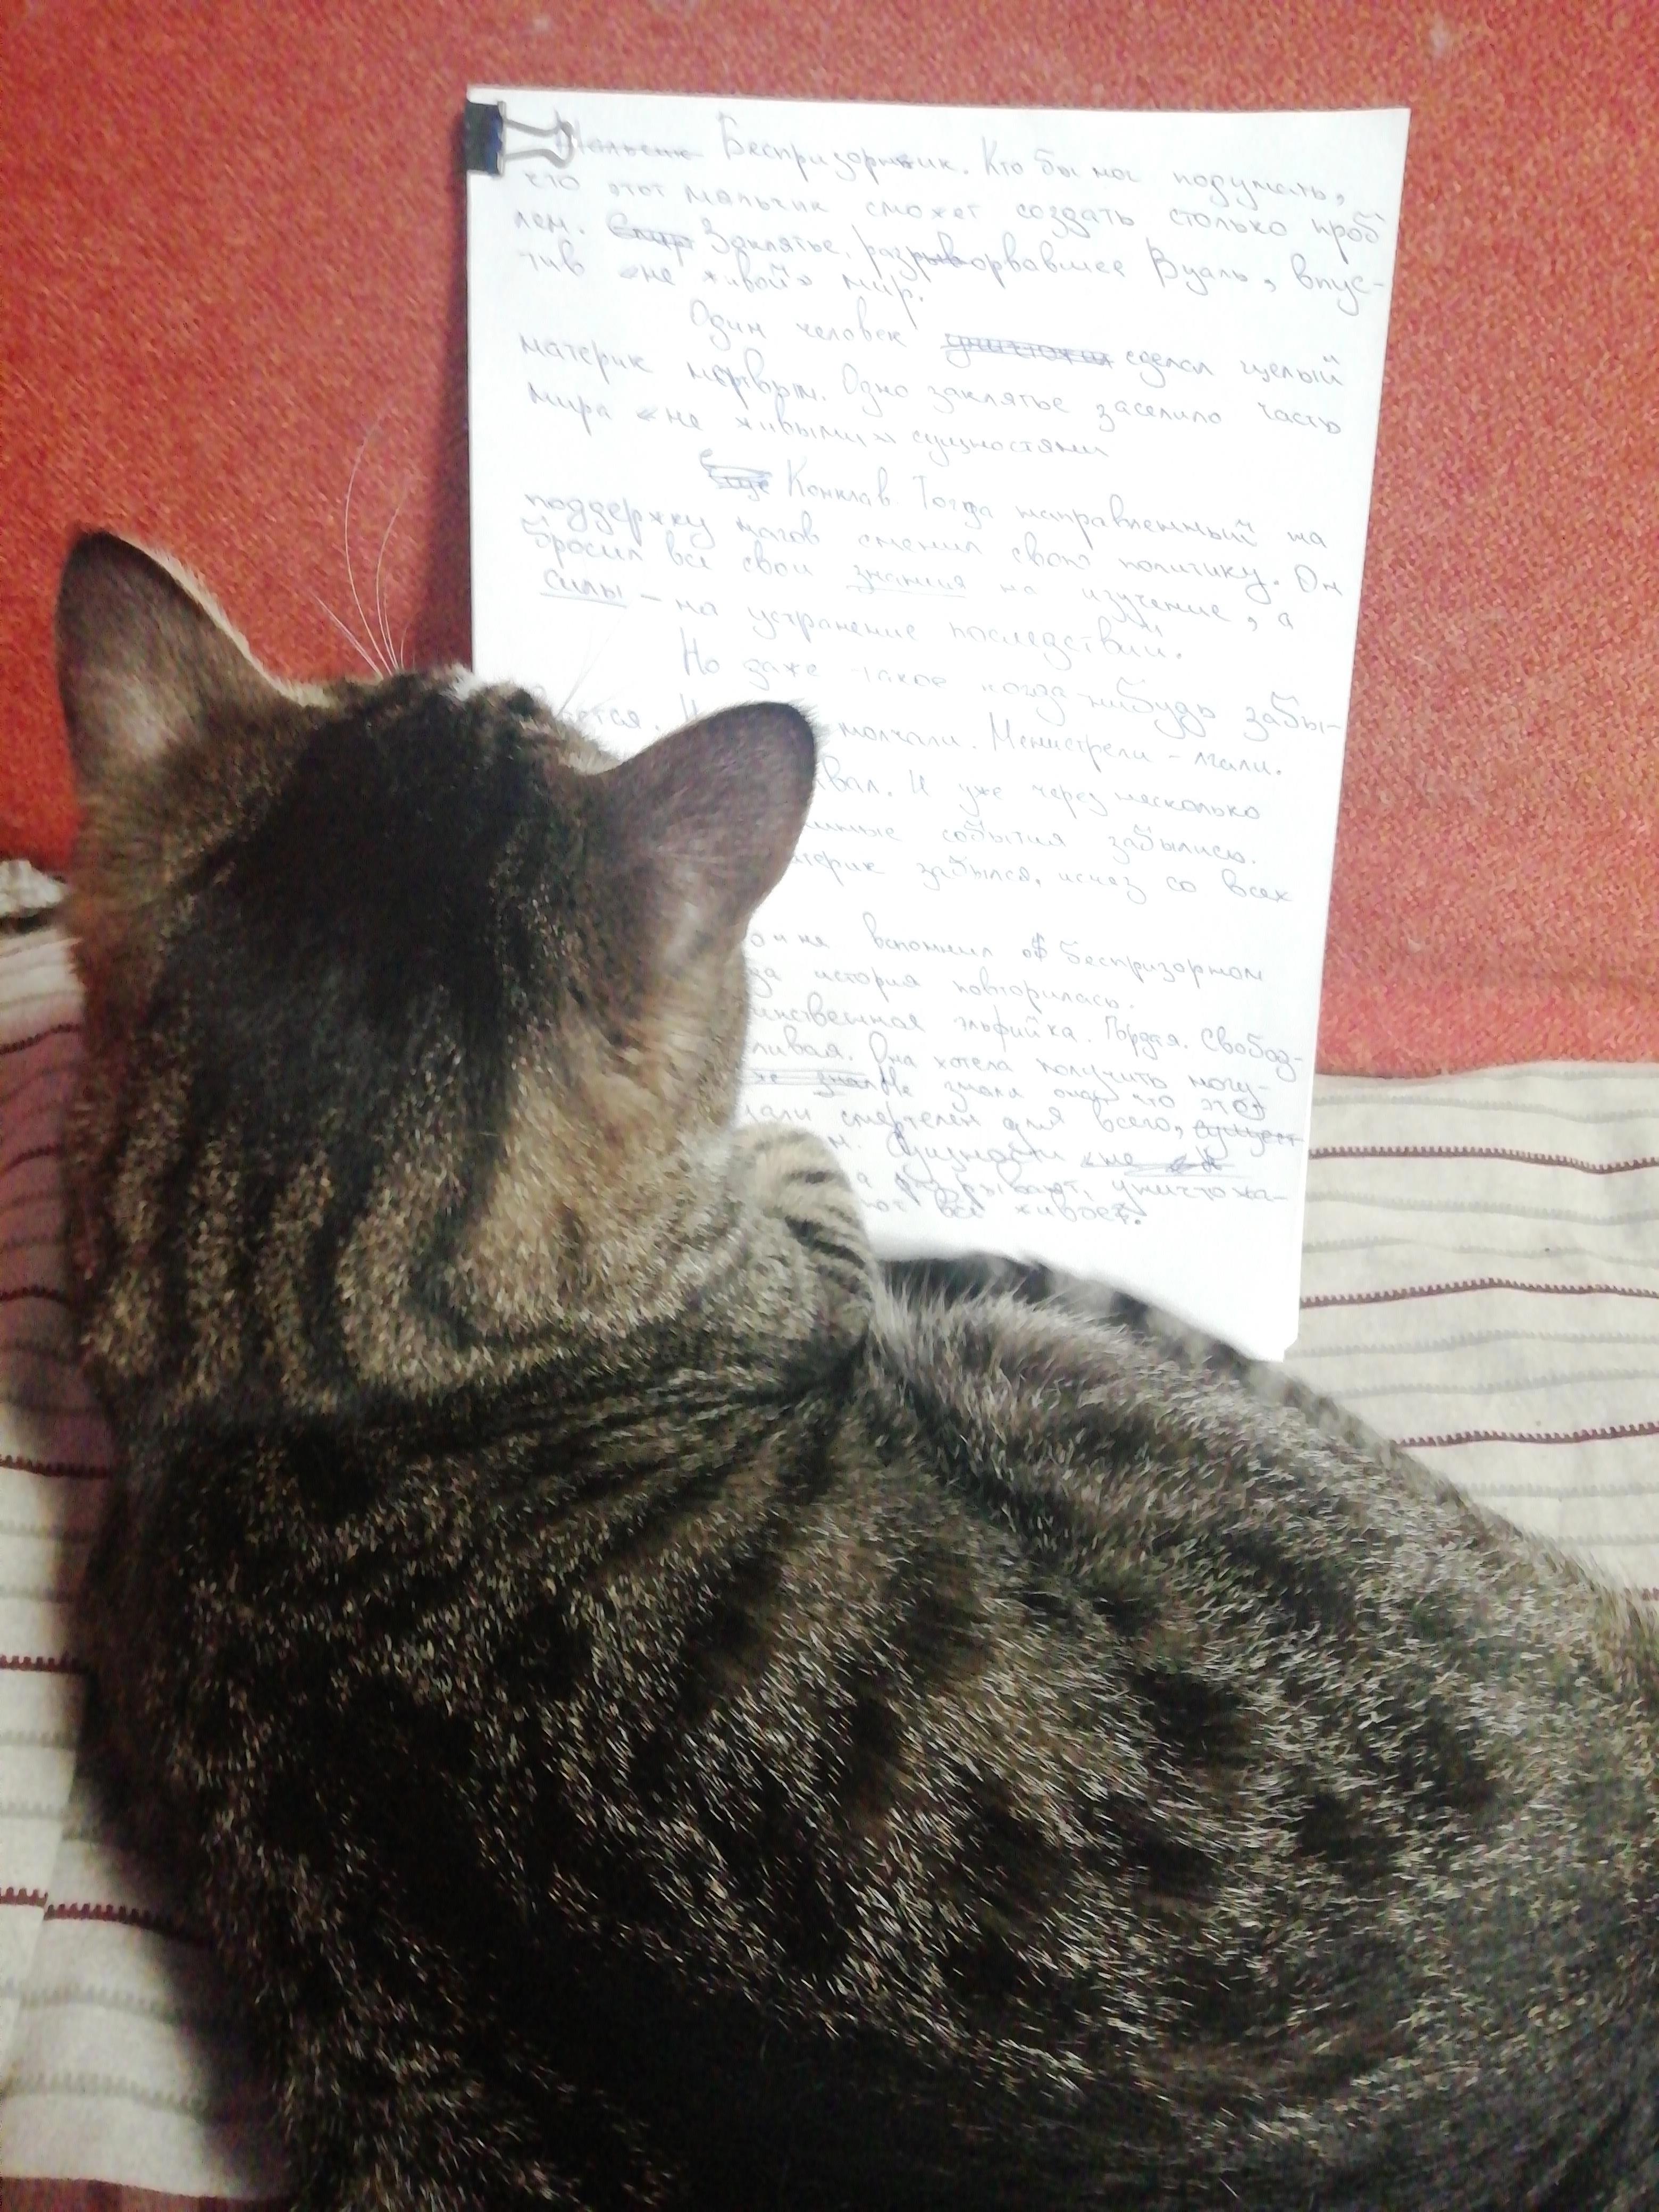 Беспризорник. Кто бы мог подумать,
что этот мальчик сможет создать столько проб
лем. Заклятье, разорвавшее Вуаль, впус-
тив «не живой» мир.
Один человек сделал целый
материк мертвым. Одно заклятье заселило часть
мира «не живыми» сущностями
Конклав. Тогда направленный на
поддержку магов сменил свою политику. Он
бросил все свои знания на изучение, а
силы – на устранение последствий.
Но даже такое когда-нибудь забы-
ется. молчали. Менестрели – лгали.
вал. И уже через несколько
события забылись.
атерик забылся, исчез со всех
не вспомнил об беспризорном
да история повторилась.
инственная эльфийка. Гордая. Свобод-
ливая. Она хотела получить могу-
Не знала она, что этот
смертелен для всего,
Сущности
разрывают, уничтожа-
ют все живое.